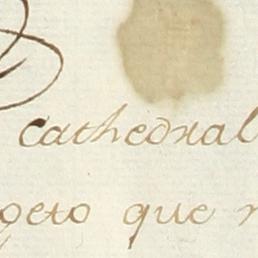 cathedral
geto que